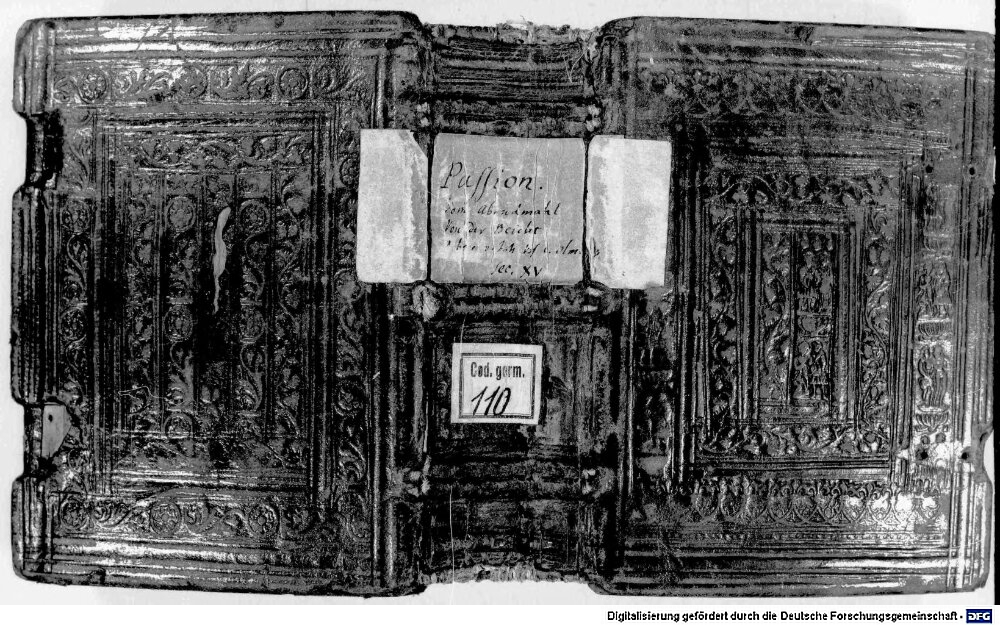 Passion.
dem Abendmahl
von der Beicht
sec. XV
Cod. germ.
110
Digitalisierung gefördert durch die Deutsche Forschungsgemeinschaft - DFG